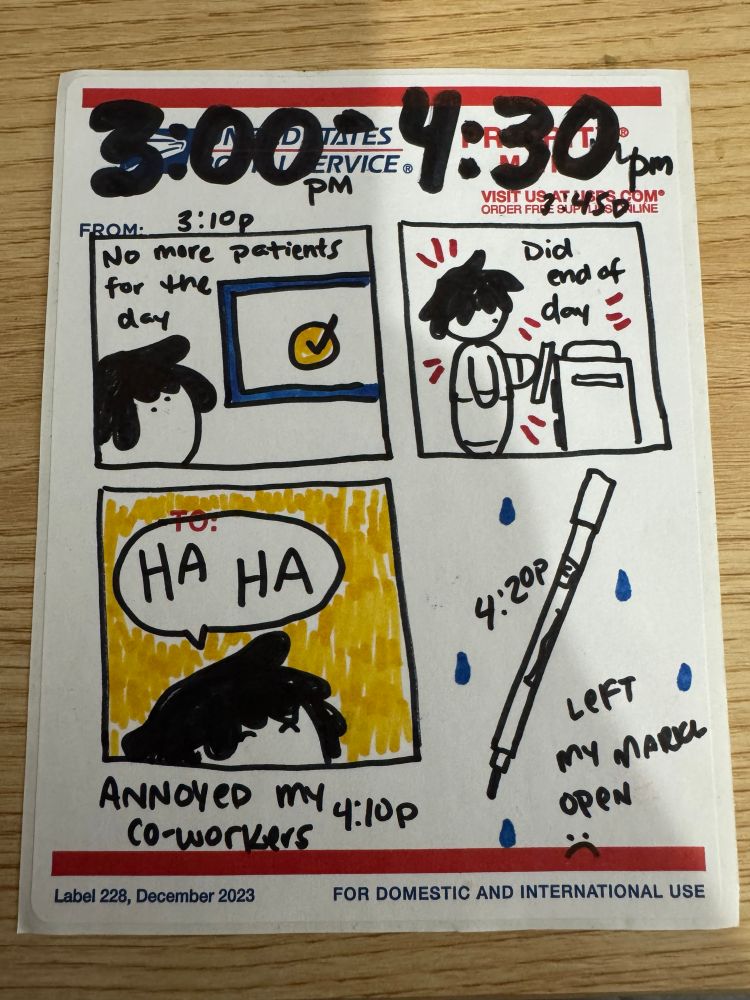 3:00 PM - 4:30 pm
UNITED STATES
POSTAL SERVICE®
PRIORITY®
MAIL
VISIT US AT USPS.COM®
ORDER FREE SUPPLIES ONLINE
FROM:
3:10p
3:45p
No more patients
for the
day
Did
end of
day
TO:
HA HA
ANNOYED my
CO-WORKERS
4:10p
4:20p
LEFT
MY MARKER
OPEN
:(
Label 228, December 2023
FOR DOMESTIC AND INTERNATIONAL USE